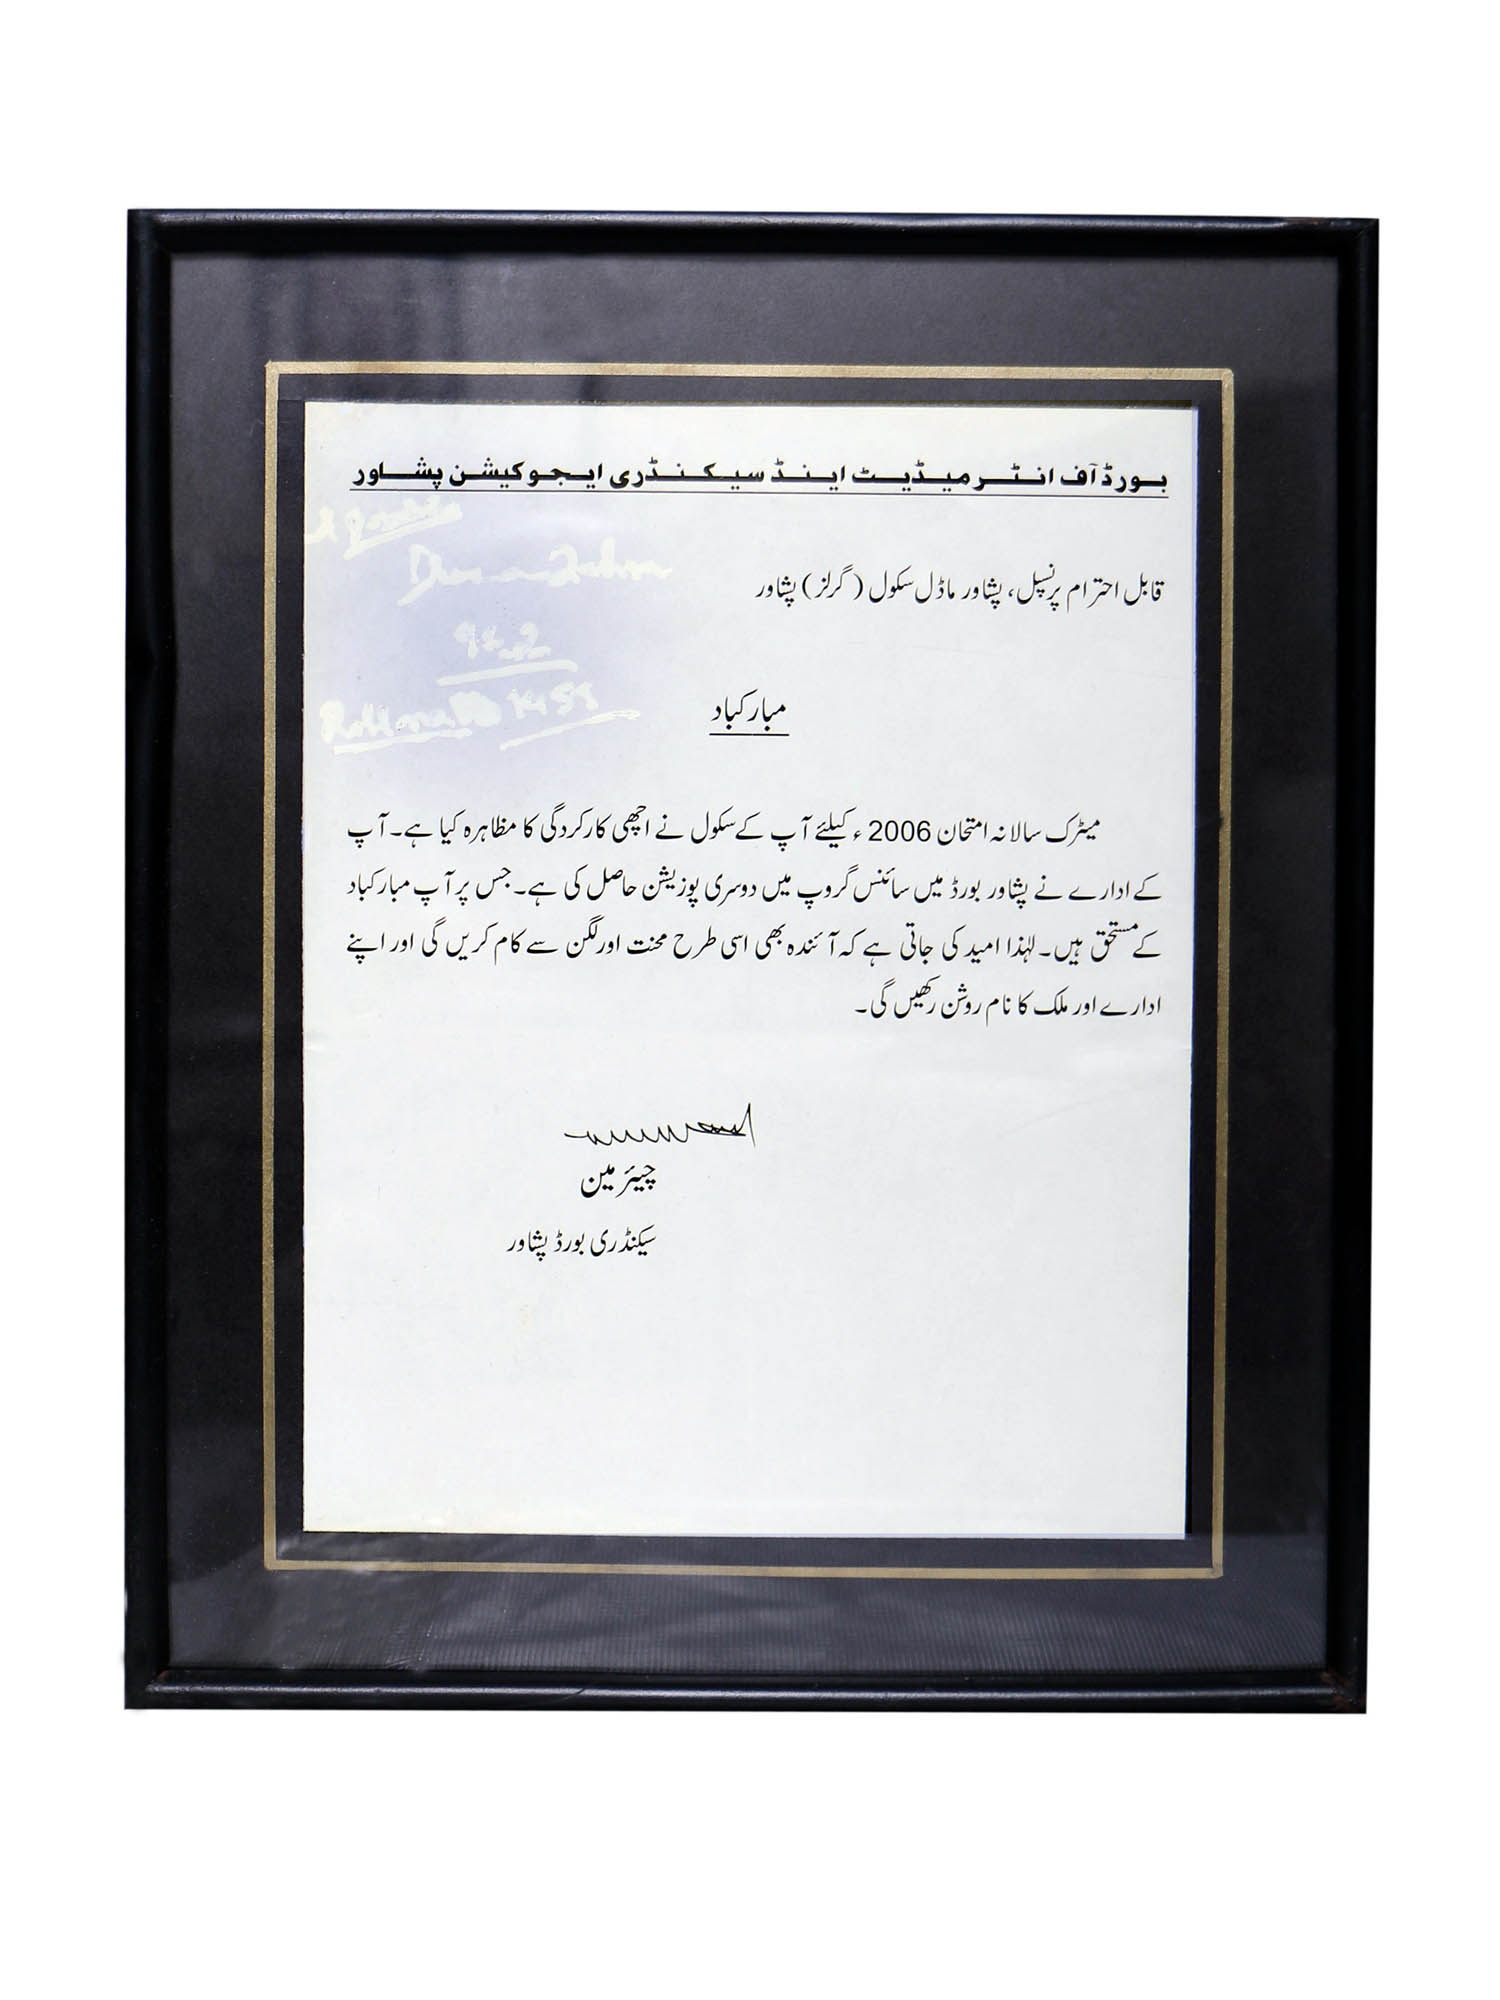 بورڈ آف انٹرمیڈیٹ اینڈ سیکنڈری ایجوکیشن پشاور
قابل احترام پرنسپل، پشاور ماڈل سکول (گرلز) پشاور
مبارکباد
میٹرک سالانہ امتحان 2006ء کیلئے آپ کے سکول نے اچھی کارکردگی کا مظاہرہ کیا ہے۔ آپ
کے ادارے نے پشاور بورڈ میں سائنس گروپ میں دوسری پوزیشن حاصل کی ہے۔ جس پر آپ مبارکباد
کے مستحق ہیں۔ لہٰذا امید کی جاتی ہے کہ آئندہ بھی اسی طرح محنت اور لگن سے کام کریں گی اور اپنے
ادارے اور ملک کا نام روشن رکھیں گی۔
چیئرمین
سیکنڈری بورڈ پشاور